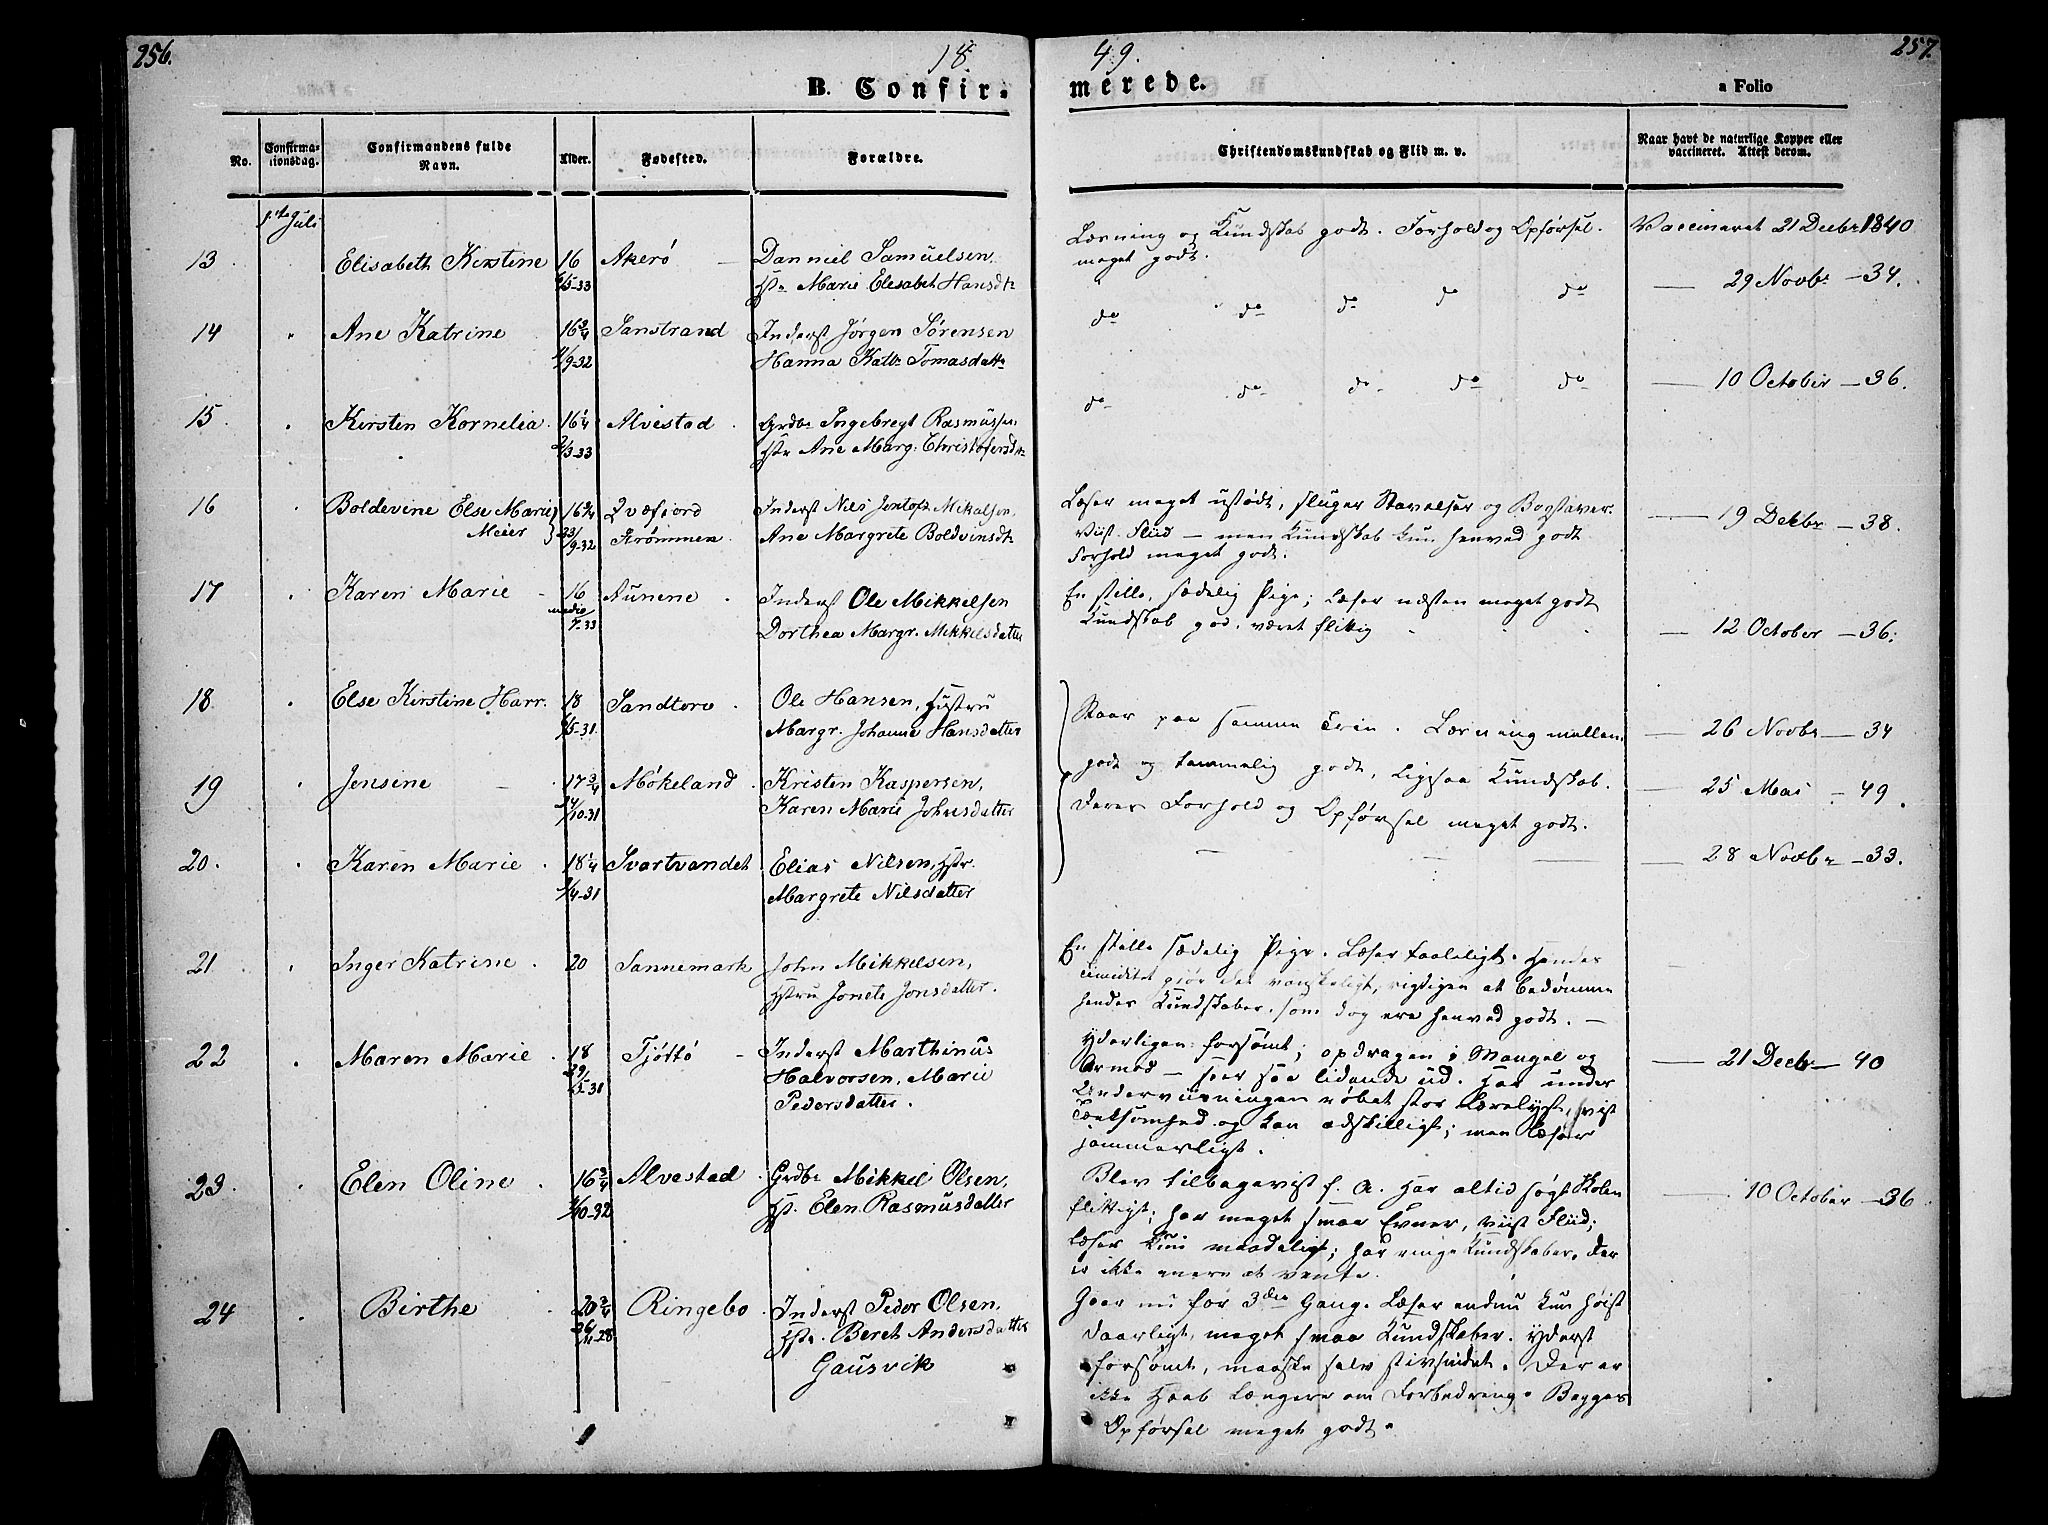 256.
18
49.
257.
B. Confir-
merede.
a Folio
No.
Confirma-
tionsdag.
Confirmandens fulde
Navn.
Alder.
Fødested.
Forældre.
Christendomskundskab og Flid m. v.
Naar havt de naturlige Kopper eller
vaccineret. Attest derom.
1ste Juli
13
Elisabeth Kirstine
16
6/5-33
Akerø
Danniel Samuelsen,
Hst. Marie Elesabet Hansdt
Læsning og Kundskab godt. Forhold og Opførsel
meget godt.
Vaccineret 21 Decbr 1840
14
Ane Katrine
16 3/4
/9-32
Sanstrand
Inderst Jørgen Sørensen
Hanna Katr. Tomasdatt
do do do do do
— 29 Novbr — 34.
15
Kirsten Kornelia
16 1/4
2/3-33
Alvestad
Grdbr Ingebregt Rasmussen
Hstr Ane Marg. Christofersdtr
do do do do do
— 10 October — 36.
16
Boldevine Else Marie
Meier
16 3/4
23/9-32
Qvæfjord
Strømmen
Inderst Nils Jentoft Mikalsen,
Ane Margrete Boldvinsdt
Læser meget ustødt, sluger Stavelser og Bogstaver.
Viist Fliid — men Kundskab kun henved godt
Forhold meget godt.
— 19 Decbr — 38.
17
Karen Marie
16
medio
7.33
Aunene
Inderst Ole Mikkelsen
Dorthea Margr. Mikkelsdatter
En stille, sædelig Pige; læser næsten meget godt
Kundskab god, været flittig
— 12 October — 36.
18
Else Kirstine Harr.
18
6/5-31
Sandtorv
Ole Hansen, Hustru
Margr. Johanne Hansdatter
Staar paa samme Trin. Læsning mellem
— 26 Novbr — 34
19
Jensine
17 3/4
24/10-31
Møkeland
Kristen Kaspersen,
Karen Marie Johnsdatter
godt og temmelig godt, ligesaa Kundskab.
Deres Forhold og Opførsel meget godt.
— 25 Mai — 49.
20.
Karen Marie
18 1/4
/4-31
Svartvandet
Elias Nilsen, Hstr.
Margrete Nilsdatter
— 28 Novbr — 33.
21
Inger Katrine
20
Sannemark
John Mikkelsen,
Hstru Jonete Jonsdatter.
En stille sædelig Pige. Læser taaleligt. Hendes
Timiditet gjør det vanskeligt, rigtigen at bedømme
hendes Kundskaber, som dog ere henved godt. —
22
Maren Marie
18
29/5-31
Tjøttø
Inderst Marthinus
Halvorsen, Marie
Pedersdatter.
Yderligen forsømt; opdragen i Mangel og
Armod — seer saa lidende ud. Har under
Underviisningen røbet stor Lærelyst, viist
Tænksomhed og kan adskilligt; men læser
jammerligt.
— 21 Decbr — 40
23
Elen Oline
16 3/4
/10-32
Alvestad
Grdbr Mikkel Olsen,
Hst. Elen Rasmusdatter
Blev tilbageviist f. A. Har altid søgt Skolen
flittigt; har meget smaa Evner, viist Fliid;
læser kun maadeligt; har ringe Kundskaber. Der
er ikke mere at vente.
10 October — 36
24
Birthe
20 3/4
26/11-28
Ringebo
Inderst Peder Olsen,
Hstr. Beret Andersdatter
Gausvik
Gaaer nu for 3die Gang. Læser endnu kun høist
daarligt, meget smaa Kundskaber. Yderst
forsømt, maaske selv stivsindet. Der er
ikke Haab længere om Forbedring. Begges
Opførsel meget godt.